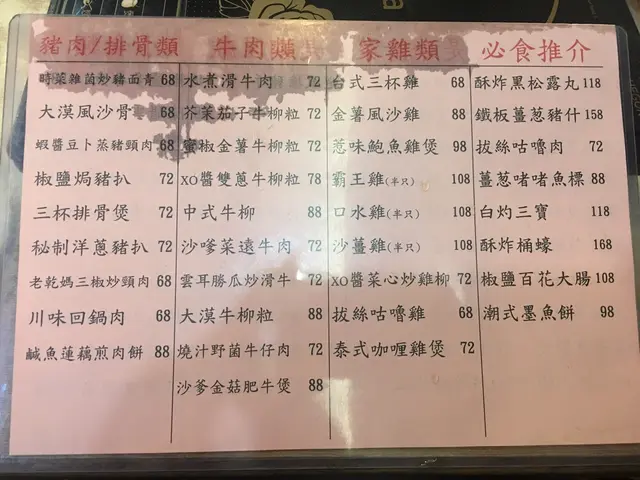 豬肉/排骨類
時菜雜菌炒豬面青 68
大漠風沙骨 68
蝦醬豆卜蒸豬頸肉 68
椒鹽焗豬扒 72
三杯排骨煲 72
秘制洋蔥豬扒 72
老乾媽三椒炒頸肉 68
川味回鍋肉 68
鹹魚蓮藕煎肉餅 88
牛肉類
水煮滑牛肉 72
芥茉茄子牛柳粒 72
蜜椒金薯牛柳粒 72
XO醬雙蔥牛柳粒 78
中式牛柳 88
沙嗲菜遠牛肉 72
雲耳勝瓜炒滑牛 72
大漠牛柳粒 88
燒汁野菌牛仔肉 72
沙爹金菇肥牛煲 88
家雞類
台式三杯雞 68
金薯風沙雞 88
惹味鮑魚雞煲 98
霸王雞(半只) 108
口水雞(半只) 108
沙薑雞(半只) 108
XO醬菜心炒雞柳 72
拔絲咕嚕雞 68
泰式咖喱雞煲 72
必食推介
酥炸黑松露丸 118
鐵板薑蔥豬什 158
拔絲咕嚕肉 72
薑蔥啫啫魚標 88
白灼三寶 118
酥炸桶蠔 168
椒鹽百花大腸 108
潮式墨魚餅 98